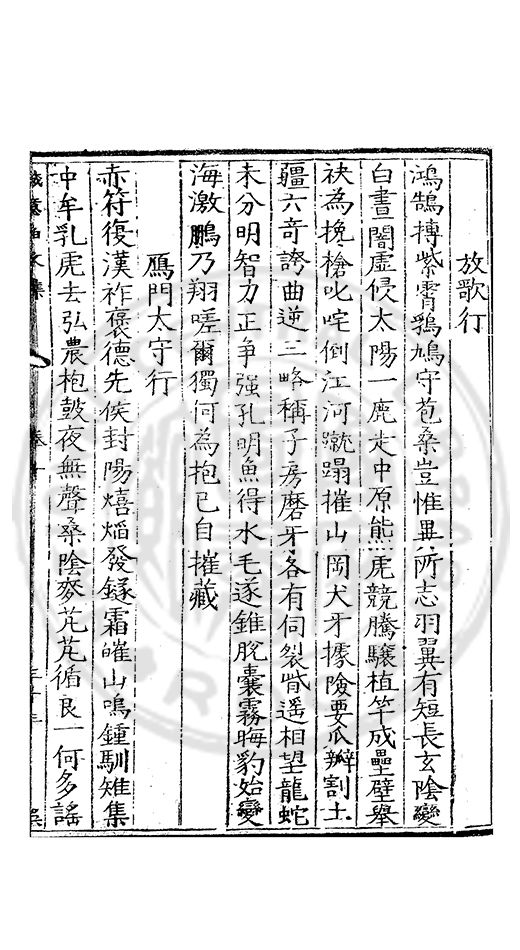 放歌行
鴻鵠摶紫霄鶉鳩守苞桑豈惟異所志羽翼有短長玄陰變
白晝闇虛侵太陽一鹿走中原熊虎競騰驤植竿成壘壁舉
袂為攙槍叱咤倒江河蹴蹋摧山岡犬牙據險要瓜瓣割土
疆六奇誇曲逆三略稱子房磨牙各有伺裂眥遥相望龍蛇
未分明智力正爭强孔明魚得水毛遂錐脫囊霧晦豹始變
海激鵬乃翔嗟爾獨何為抱已自摧藏
鴈門太守行
赤符復漢祚褒德先侯封陽熺熖發鐩霜皠山鳴鍾馴雉集
中牟乳虎去弘農枹鼓夜無聲桑陰麥芃芃循良一何多謡